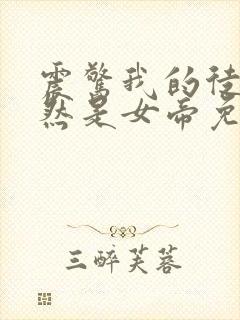 震惊我的徒
然是女帝免
三醉芙蓉